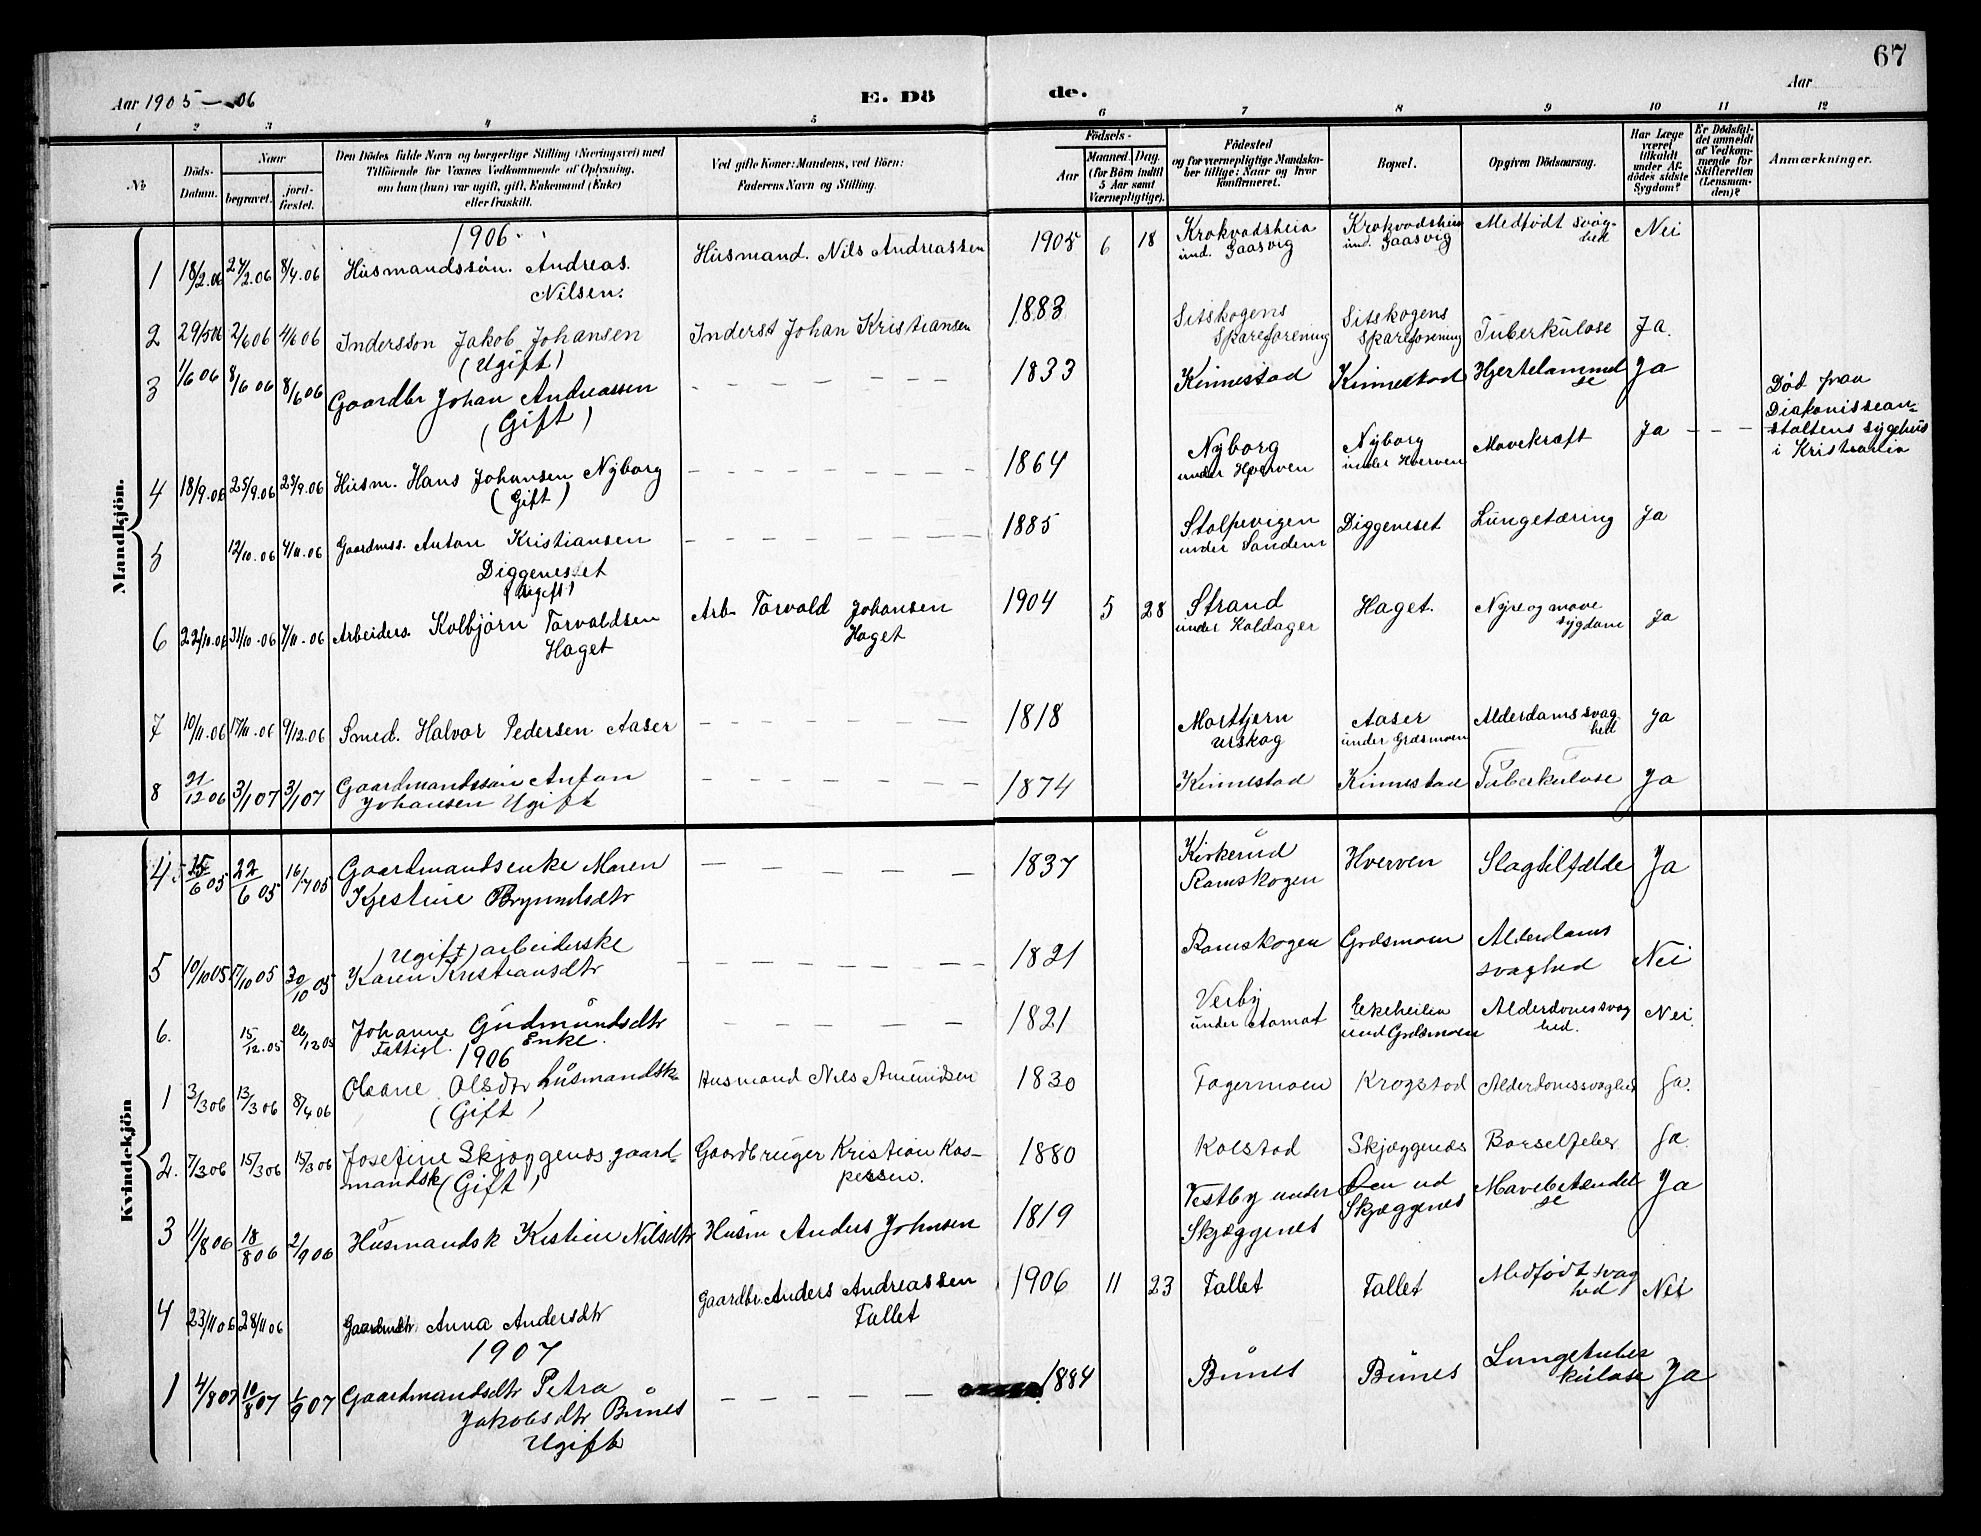 67
Aar 1905 — 06
E. Dö
de.
Aar
1 2 3 4 5 6 7 8 9 10 11 12
No
Döds-
Datum.
Naar
begravet.
jord-
fæstet.
Den Dödes fulde Navn og borgerlige Stilling (Næringsvei) med
Tilföiende for Voxnes Vedkommende af Oplysning,
om han (hun) var ugift, gift, Enkemand (Enke)
eller fraskilt.
Ved gifte Koner: Mandens, ved Börn:
Faderens Navn og Stilling.
Födsels-
Aar
Maaned. Dag.
(for Börn indtil
5 Aar samt
Værnepligtige).
Födested
og for værnepligtige Mandska-
ber tillige: Naar og hvor
konfirmeret.
Bopæl.
Opgiven Dödsaarsag.
Har Læge
været
tilkaldt
under Af-
dödes sidste
Sygdom?
Er Dödsfal-
det anmeldt
af Vedkom-
mende for
Skifteretten
(Lensman-
den)?
Anmærkninger.
Mandkjön.
1906
1 18/2.06 24/2.06 8/4.06 Husmandssön. Andreas.
Nilsen.
Husmand. Nils Andreassen
1905 6 18 Krokvadsheia
und. Gaasvig
Krokvadsheia
und. Gaasvig
Medfödt svag-
hed
Nei
2 29/5 06 2/6 06 4/6 06 Indersson Jakob Johansen
(Ugift)
Inderst Johan Kristiansen
1883 Sitskogens
Spareforening
Sitskogens
Spareforening
Tuberkulose Ja.
3 1/6 06 8/6 06 8/6 06 Gaardbr Johan Andreassen
(Gift)
1833 Kinnestad Kinnestad Hjertelammel
se
Ja
4 18/9.06 25/9.06 25/9.06 Husm. Hans Johansen Nyborg
(Gift)
1864 Nyborg
under Hverven
Nyborg
under Hverven
Mavekræft Ja
Död paa
Diakonissean-
staltens sygehus
i Kristiania
5 12/10.06 4/11.06 Gaardmss. Anton Kristiansen
Diggeneset
(Ugift)
1885 Stolpevigen
under Sandem
Diggeneset Lungetæring Ja
6 31/10.06 4/11.06 Arbeiders. Kolbjörn Torvaldsen
Haget
Arb. Torvald Johansen
Haget
1904 5 28 Strand
under Kaldager
Haget. Nyre og mave
sygdom
Ja
7 10/11.06 17/11.06 9/12.06 Smed. Halvor Pedersen Aaser
1818 Mortjern
urskog
Aaser
under Græsmoen
Alderdomssvag
hed
Ja
8 21/12 06 3/1 07 3/1 07 Gaardmandssön Anton
Johansen Ugift
1874 Kinnestad Kinnestad Tuberkulose Ja
Kvindekjön
4 15/6 05 22/6 05 16/7 05 Gaardmandsenke Maren
Kjestine Brynildsdtr
1837 Kirkerud
Römskogen
Hverven Slagtilfælde Ja
5 10/10 05 17/10 05 30/10 05 (Ugift) arbeiderske
Karen Kristiansdtr
1821 Römskogen Græsmoen Alderdoms
svaghed
Nei
6. 15/12.05 26/12 05 Johanne Gudmundsdtr
Fattigl. Enke.
1821 Verby
under Aamot
Ekeheilen
und Græsmoen
Alderdomssvag
hed.
Nei.
1906
1 3/3 06 13/3 06 8/4 06 Oleane Olsdtr husmandsk
(Gift)
Husmand Nils Amundsen
1830 Fagermoen Krogstad Alderdomssvaghed Ja.
2. 7/3 06 15/3 06 15/3 06 Josefine Skjæggenæs gaard-
mandsk (Gift)
Gaardbruger Kristian Kas-
persen.
1880 Kolstad Skjæggenæs Barselfeber Ja
3 11/8 06 18/8 06 2/9 06 Husmandsk Kestine Nilsdtr
Husm Anders Johnsen
1819 Vestby under
Skjæggenes
Öen ud
Skjæggenes
Mavebetændel
se
Ja
4 23/11 06 28/11 06 Gaardmdtr Anna Andersdtr
Gaardbr. Anders Andreassen
Tallet
1906 11 23 Tallet Tallet Medfödt svag
hed
Nei
1907
1 4/8 07 10/8 07 1/9 07 Gaardmandsdtr Petra
Jakobsdtr Bunes
Ugift
1884 Bunes Bunes Lungetuber
kulose
Ja